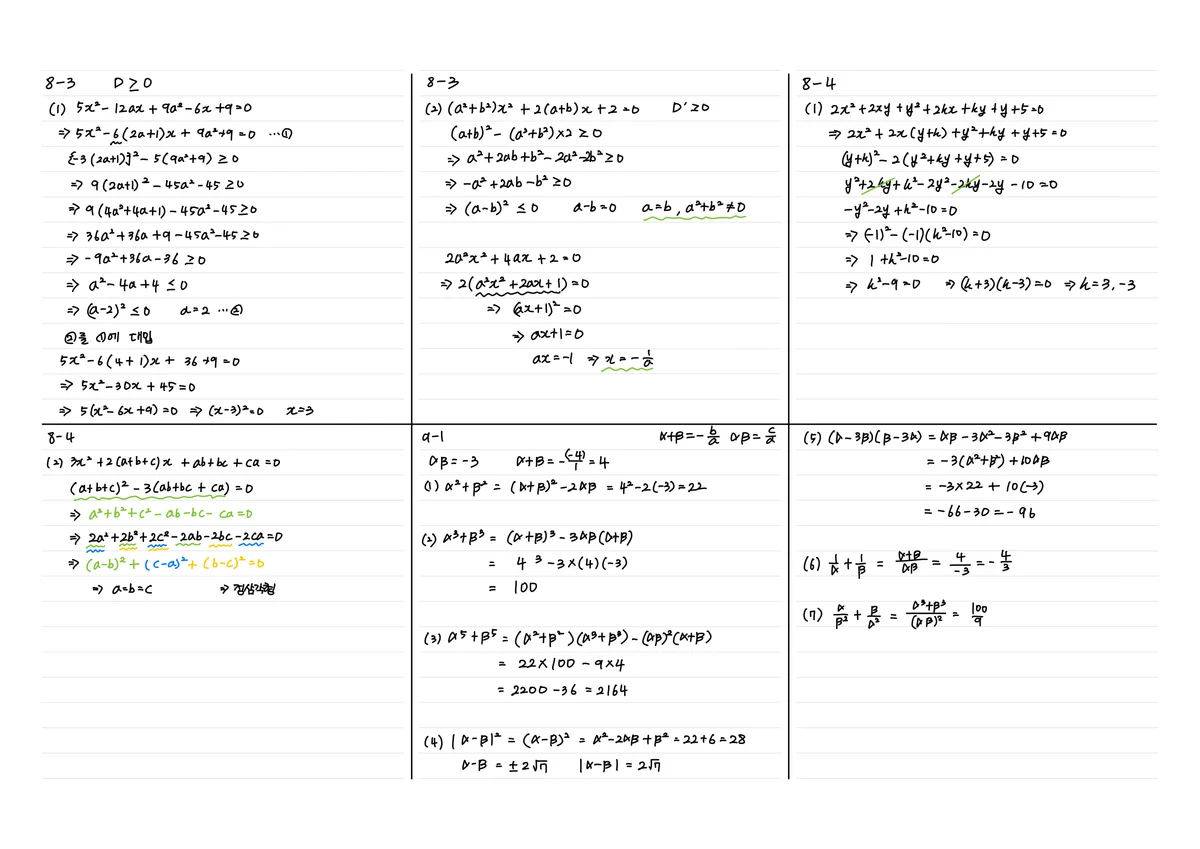 8-3 D≥0
(1) 5x²-12ax+9a²-6x+9=0
⇒ 5x²-6(2a+1)x+9a²+9=0 …①
{-3(2a+1)}²-5(9a²+9)≥0
⇒ 9(2a+1)²-45a²-45≥0
⇒ 9(4a²+4a+1)-45a²-45≥0
⇒ 36a²+36a+9-45a²-45≥0
⇒ -9a²+36a-36≥0
⇒ a²-4a+4≤0
⇒ (a-2)²≤0 a=2 …②
②를 ①에 대입
5x²-6(4+1)x+36+9=0
⇒ 5x²-30x+45=0
⇒ 5(x²-6x+9)=0 ⇒ (x-3)²=0 x=3
8-3
(2) (a²+b²)x²+2(a+b)x+2=0 D'≥0
(a+b)²-(a²+b²)×2≥0
⇒ a²+2ab+b²-2a²-2b²≥0
⇒ -a²+2ab-b²≥0
⇒ (a-b)²≤0 a-b=0 a=b, a²+b²≠0
2a²x²+4ax+2=0
⇒ 2(a²x²+2ax+1)=0
⇒ (ax+1)²=0
⇒ ax+1=0
ax=-1 ⇒ x=-1/a
8-4
(1) 2x²+2xy+y²+2kx+ky+y+5=0
⇒ 2x²+2x(y+k)+y²+ky+y+5=0
(y+k)²-2(y²+ky+y+5)=0
y²+2ky+k²-2y²-2ky-2y-10=0
-y²-2y+k²-10=0
⇒ (-1)²-(-1)(k²-10)=0
⇒ 1+k²-10=0
⇒ k²-9=0 ⇒ (k+3)(k-3)=0 ⇒ k=3, -3
8-4
(2) 3x²+2(a+b+c)x+ab+bc+ca=0
(a+b+c)²-3(ab+bc+ca)=0
⇒ a²+b²+c²-ab-bc-ca=0
⇒ 2a²+2b²+2c²-2ab-2bc-2ca=0
⇒ (a-b)²+(c-a)²+(b-c)²=0
⇒ a=b=c ⇒ 정삼각형
9-1 α+β=-b/a αβ=c/a
αβ=-3 α+β=-(-4)/1=4
(1) α²+β²=(α+β)²-2αβ=4²-2(-3)=22
(2) α³+β³=(α+β)³-3αβ(α+β)
= 4³-3×(4)(-3)
= 100
(3) α⁵+β⁵=(α²+β²)(α³+β³)-(αβ)²(α+β)
= 22×100-9×4
= 2200-36=2164
(4) |α-β|²=(α-β)²=α²-2αβ+β²=22+6=28
α-β=±2√7 |α-β|=2√7
(5) (α-3β)(β-3α)=αβ-3α²-3β²+9αβ
= -3(α²+β²)+10αβ
= -3×22+10(-3)
= -66-30=-96
(6) 1/α+1/β=(α+β)/αβ=4/-3=-4/3
(7) α/β²+β/α²=(α³+β³)/(αβ)²=100/9